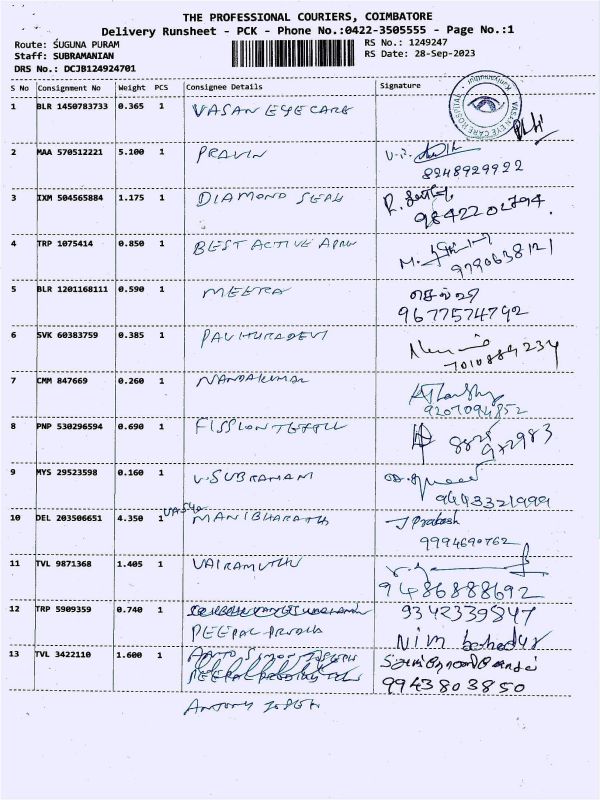 THE PROFESSIONAL COURIERS, COIMBATORE
Delivery Runsheet - PCK - Phone No.:0422-3505555 - Page No.:1
Route: SUGUNA PURAM
RS No.: 1249247
Staff: SUBRAMANIAN
RS Date: 28-Sep-2023
DRS No.: DCJB124924701
S No Consignment No Weight PCS Consignee Details Signature
1 BLR 1450783733 0.365 1 VASAN EYE CARE
VASAN EYE CARE HOSPITAL
2 MAA 570512221 5.100 1 PRAVIN
8248929922
3 IXM 504565884 1.175 1 DIAMOND SEAL
4 TRP 1075414 0.850 1 BEST ACTIVE
9790638121
5 BLR 1201168111 0.590 1 MEERA
செல்வி
9677574792
6 SVK 60383759 0.385 1 PAVITHRADEVI
7010889234
7 CMM 847669 0.260 1 NANDAKUMAR
9207094852
8 PNP 530296594 0.690 1
9 MYS 29523598 0.160 1 V.SUBRAMANI
9443321999
10 DEL 203506651 4.350 1 MANIBHARATH J Prakash
9994690762
11 TVL 9871368 1.405 1 VAIRAMUTHU
9486888692
12 TRP 5909359 0.740 1 9342339847
Nim bahadur
13 TVL 3422110 1.600 1
9943803850
ANTONY JOSEPH